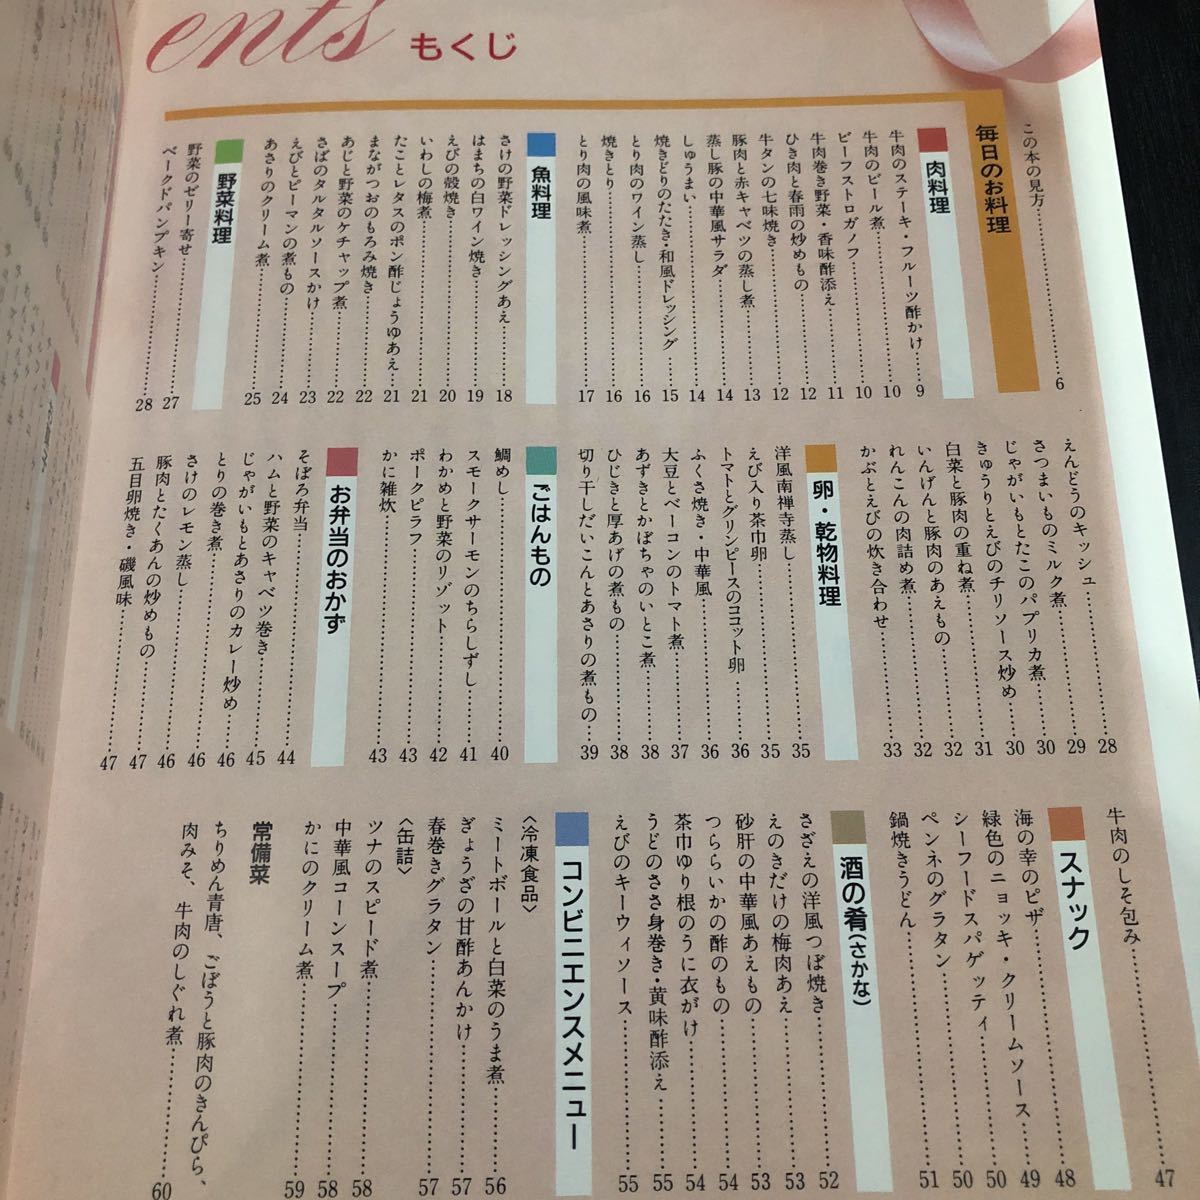 ents もくじ
この本の見方…………6
毎日のお料理
肉料理
牛肉のステーキ・フルーツ酢かけ……9
牛肉のビール煮……10
ビーフストロガノフ……10
牛肉巻き野菜・香味酢添え……11
ひき肉と春雨の炒めもの……12
牛タンの七味焼き……12
豚肉と赤キャベツの蒸し煮……13
蒸し豚の中華風サラダ……14
しゅうまい……14
焼きどりのたたき・和風ドレッシング……15
とり肉のワイン蒸し……16
焼きとり……16
とり肉の風味煮……17
魚料理
さけの野菜ドレッシングあえ……18
はまちの白ワイン焼き……19
えびの殻焼き……20
いわしの梅煮……21
たことレタスのポン酢じょうゆあえ……21
まながつおのもろみ焼き……22
あじと野菜のケチャップ煮……22
さばのタルタルソースかけ……23
えびとピーマンの煮もの……24
あさりのクリーム煮……25
野菜料理
野菜のゼリー寄せ……27
ベークドパンプキン……28
えんどうのキッシュ……28
さつまいものミルク煮……29
じゃがいもとたこのパプリカ煮……30
きゅうりとえびのチリソース炒め……30
白菜と豚肉の重ね煮……31
いんげんと豚肉のあえもの……32
れんこんの肉詰め煮……32
かぶとえびの炊き合わせ……33
卵・乾物料理
洋風南禅寺蒸し……35
えび入り茶巾卵……35
トマトとグリンピースのココット卵……36
ふくさ焼き・中華風……36
大豆とベーコンのトマト煮……37
あずきとかぼちゃのいとこ煮……38
ひじきと厚あげの煮もの……38
切り干しだいこんとあさりの煮もの……39
ごはんもの
鯛めし……40
スモークサーモンのちらしずし……41
わかめと野菜のリゾット……42
ポークピラフ……43
かに雑炊……43
お弁当のおかず
そぼろ弁当……44
ハムと野菜のキャベツ巻き……45
じゃがいもとあさりのカレー炒め……46
とりの巻き煮……46
さけのレモン蒸し……46
豚肉とたくあんの炒めもの……47
五目卵焼き・磯風味……47
牛肉のしそ包み……47
スナック
海の幸のピザ……48
緑色のニョッキ・クリームソース……49
シーフードスパゲッティ……50
ペンネのグラタン……50
鍋焼きうどん……51
酒の肴(さかな)
さざえの洋風つぼ焼き……52
えのきだけの梅肉あえ……53
砂肝の中華風あえもの……53
つららいかの酢のもの……54
茶巾ゆり根のうに衣がけ……54
うどのささ身巻き・黄味酢添え……55
えびのキーウィソース……55
コンビニエンスメニュー
〈冷凍食品〉
ミートボールと白菜のうま煮……56
ぎょうざの甘酢あんかけ……57
春巻きグラタン……57
〈缶詰〉
ツナのスピード煮……58
中華風コーンスープ……58
かにのクリーム煮……59
常備菜
ちりめん青唐、ごぼうと豚肉のきんぴら、
肉みそ、牛肉のしぐれ煮……60